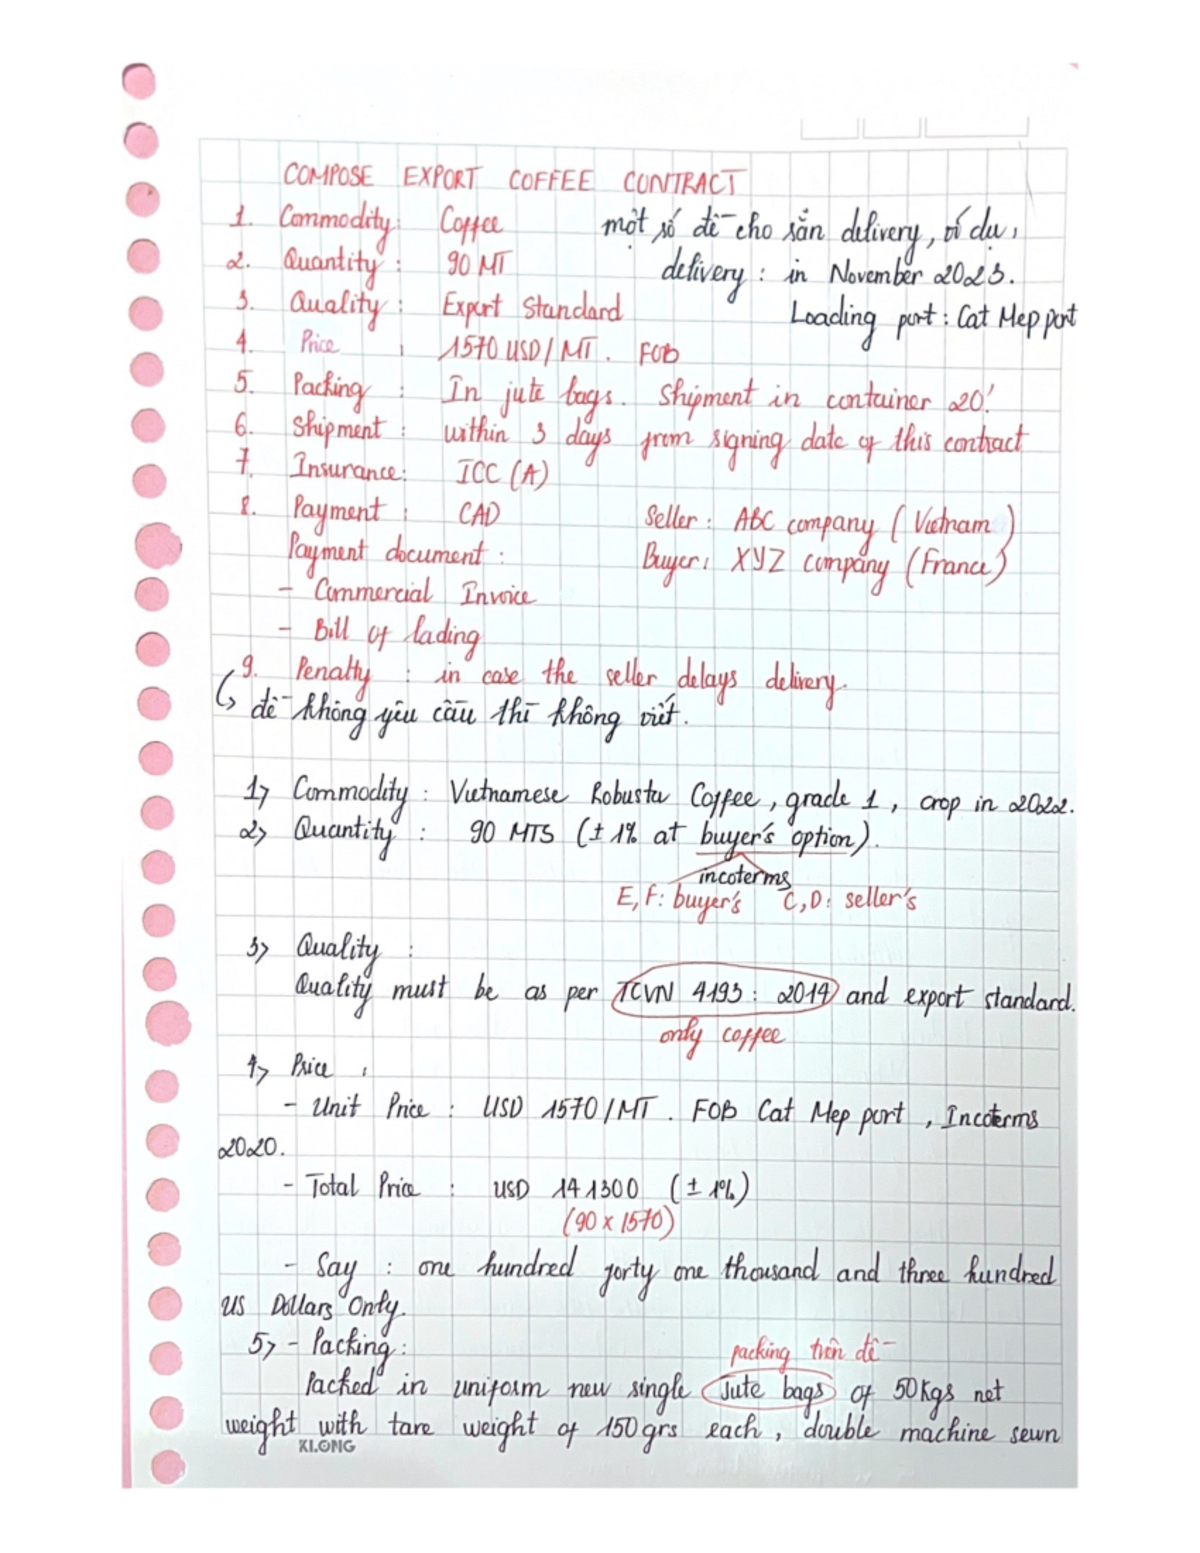 COMPOSE EXPORT COFFEE CONTRACT
1. Commodity: Coffee
một số đề cho sẵn delivery, ví dụ:
2. Quantity: 90 MT
delivery: in November 2023.
3. Quality: Export Standard
Loading port: Cat Mep port
4. Price: 1570 USD/MT. FOB
5. Packing: In jute bags. Shipment in container 20'.
6. Shipment: within 3 days from signing date of this contract
7. Insurance: ICC (A)
8. Payment: CAD
Seller: ABC company (Vietnam)
Payment document:
Buyer: XYZ company (France)
- Commercial Invoice
- Bill of lading
9. Penalty: in case the seller delays delivery.
↳ đề không yêu cầu thì không viết.
1> Commodity: Vietnamese Robusta Coffee, grade 1, crop in 2022.
2> Quantity: 90 MTS (± 1% at buyer's option).
incoterms
E, F: buyer's C, D: seller's
3> Quality:
Quality must be as per TCVN 4193: 2014 and export standard.
only coffee
4> Price:
- Unit Price: USD 1570/MT. FOB Cat Mep port, Incoterms
2020.
- Total Price: USD 141300 (± 1%)
(90 x 1570)
- Say: one hundred forty one thousand and three hundred
US Dollars Only.
5> - Packing:
packing trên đề
Packed in uniform new single Jute bags of 50kgs net
weight with tare weight of 150grs each, double machine sewn
KLONG